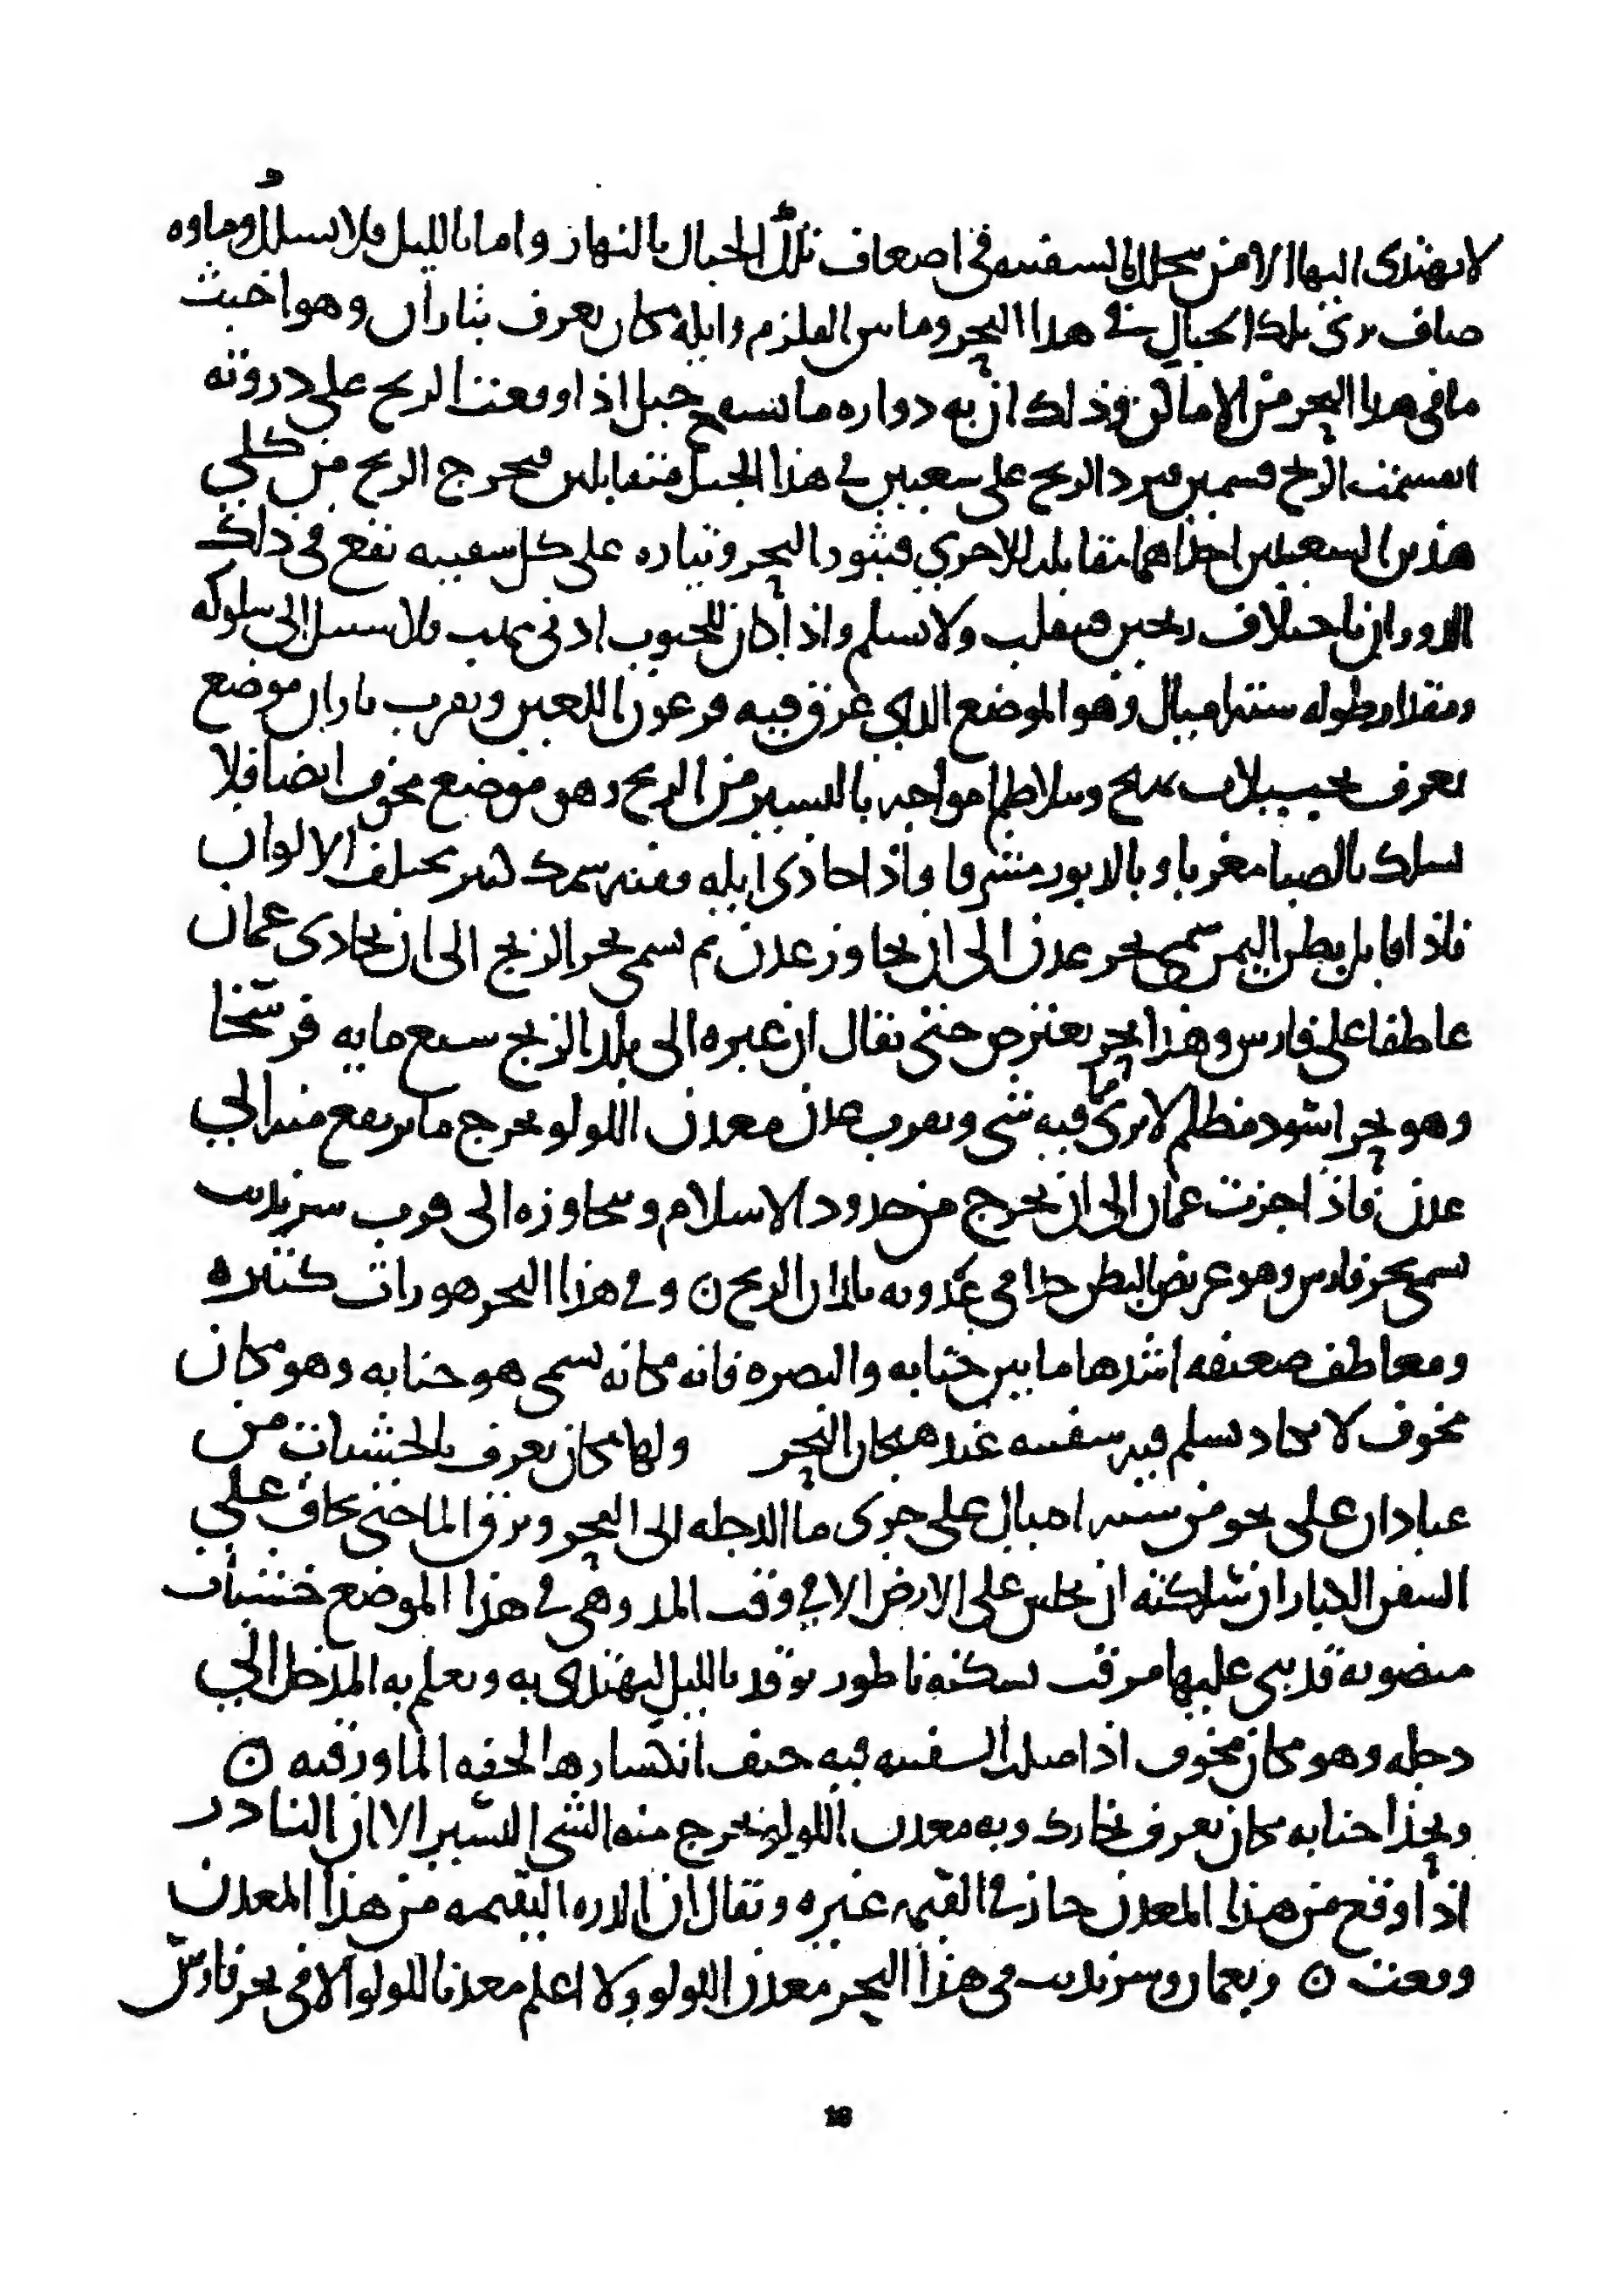 لا يهتدى اليها الا من يتخلل بالسفينه في اضعاف تلك الجبال بالنهار واما بالليل فلا يسلك وماوه
صاف يرى تلك الجبال في هذا البحر وما بين القلزم وايله مكان يعرف بتاران وهو اخبث
ما في هذا البحر من الاماكن وذلك ان به دواره ما بسفح جبل اذا وقعت الريح على دروته
انقسمت الريح قسمين فيرد الريح على شعبين في هذا الجبل متقابلين فيخرج الريح من كلي
هذين الشعبين احداهما مقابله للاخري فيثور البحر وتياره على كل سفينه تقع في ذلك
الدوران باختلاف ريحين فينقلب ولا تسلم واذا كان للجنوب ادنى مهب فلا سبيل الى سلوكه
ومقدار طوله سته اميال وهو الموضع الذي غرق فيه فرعون اللعين وبقرب تاران موضع
يعرف بجبيلات يهيج وتتلاطم امواجه باليسير من الريح وهو موضع مخوف ايضا فلا
يسلك بالصبا مغربا وبالدبور مشرقا واذا حاذى ايله ففيه سمك كثير مختلف الالوان
فاذا قابل بطن اليمن سمى بحر عدن الى ان يجاوز عدن ثم يسمى بحر الزنج الى ان يحاذى عمان
عاطفا على فارس وهذا بحر يعترض حتى يقال ان عبره الى بلد الزنج سبع مايه فرسخا
وهو بحر اسود مظلم لا يرى مما فيه شى وبقرب عدن معدن اللولو يخرج ما يرتفع منه الي
عدن فاذا جزت عمان الى ان يخرج من حدود الاسلام وتتجاوزه الى قرب سرنديب
يسمى بحر فارس وهو عريض البطن جدا في عدوته بلدان الزنج ن وفي هذا البحر هورات كثيره
ومعاطف صعيفه اشدها ما بين جنابه والبصره فانه مكانه يسمى هو جنابه وهو مكان
مخوف لا يكاد تسلم فيه سفينه عند هيجان البحر ولها مكان يعرف بالخشبات من
عبادان على نحو من سته اميال على جرى ما الدجله الى البحر ويرق الما حتى يخاف علي
السفن الكبار ان سلكته ان تجلس على الارض الا في وقت المد وهي في هذا الموضع خشبات
منصوبه قد بنى عليها مرقب يسكنه ناطور يوقد بالليل ليهتدى به ويعلم به المدخل الي
دجله وهو مكان مخوف اذا ضلت السفينه فيه خيف انكسارها لخفه الما ورقته ن
وبحذا جنابه مكان يعرف بخارك وبه معدن اللولو يخرج منه الشي اليسير الا ان النادر
اذا وقع من هذا المعدن جاز في القيمه غيره ويقال ان الدره اليتيمه من هذا المعدن
وقعت ن وبعمان وسرنديب في هذا البحر معدن اللولو ولا اعلم معدنا للولو الا في بحر فارس
18